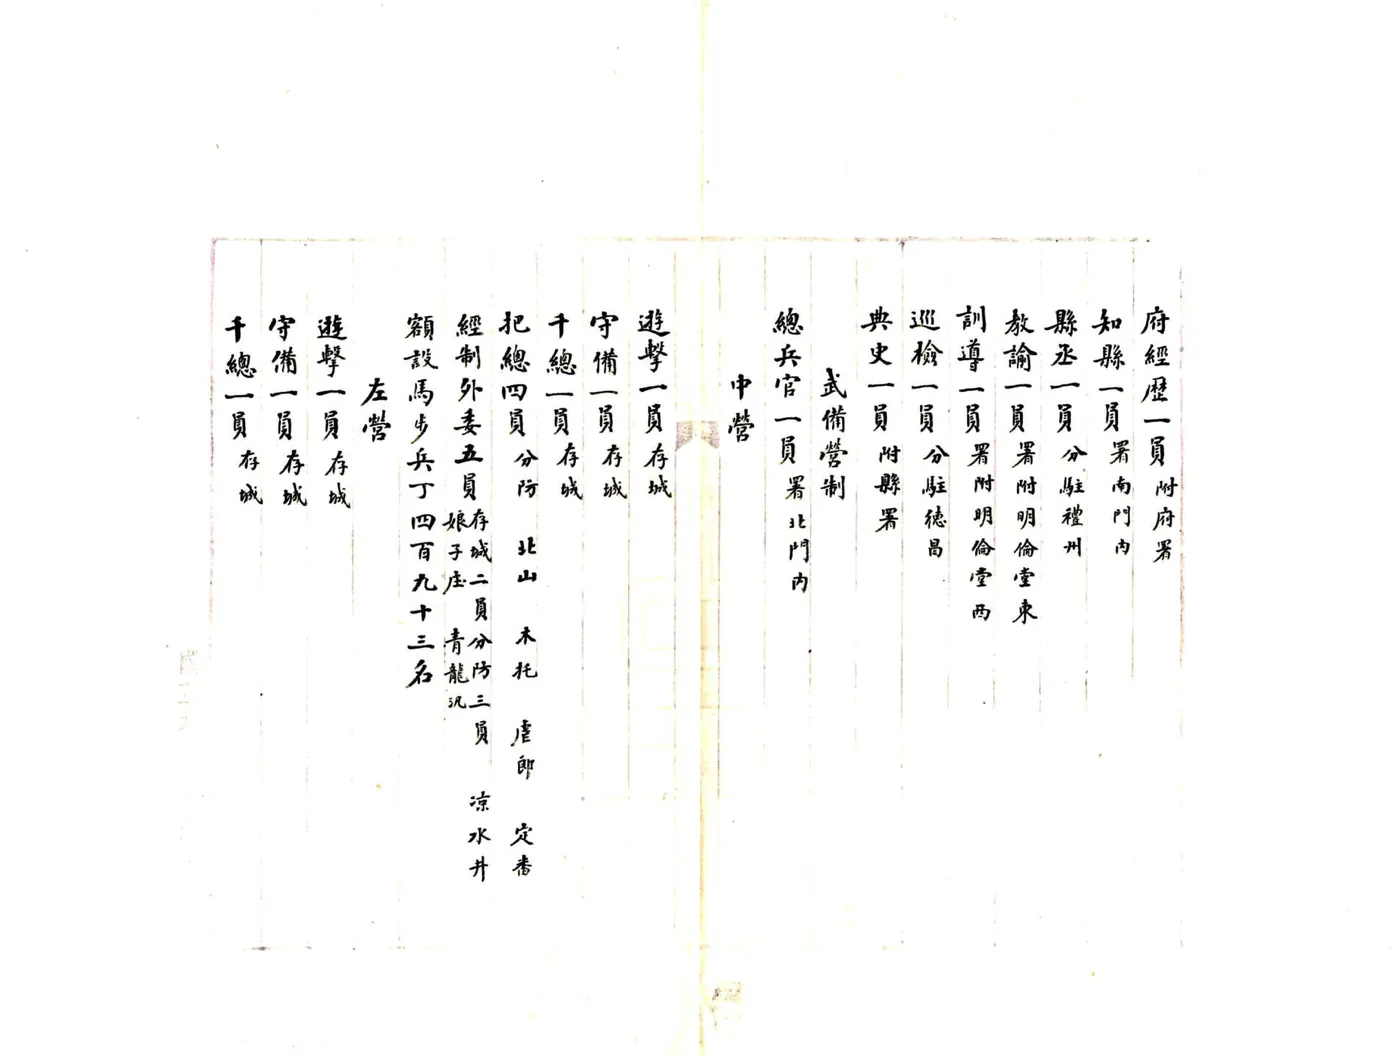 府經歷一員附府署
知縣一員署南門內
縣丞一員分駐禮州
教諭一員署附明倫堂東
訓導一員署附明倫堂西
巡檢一員分駐德昌
典史一員附縣署
武備營制
總兵官一員署北門內
中營
遊擊一員存城
守備一員存城
千總一員存城
把總四員分防 北山 木托 虐郎 定番
經制外委五員存城二員分防三員 凉水井
娘子庄 青龍汛
額設馬步兵丁四百九十三名
左營
遊擊一員存城
守備一員存城
千總一員存城